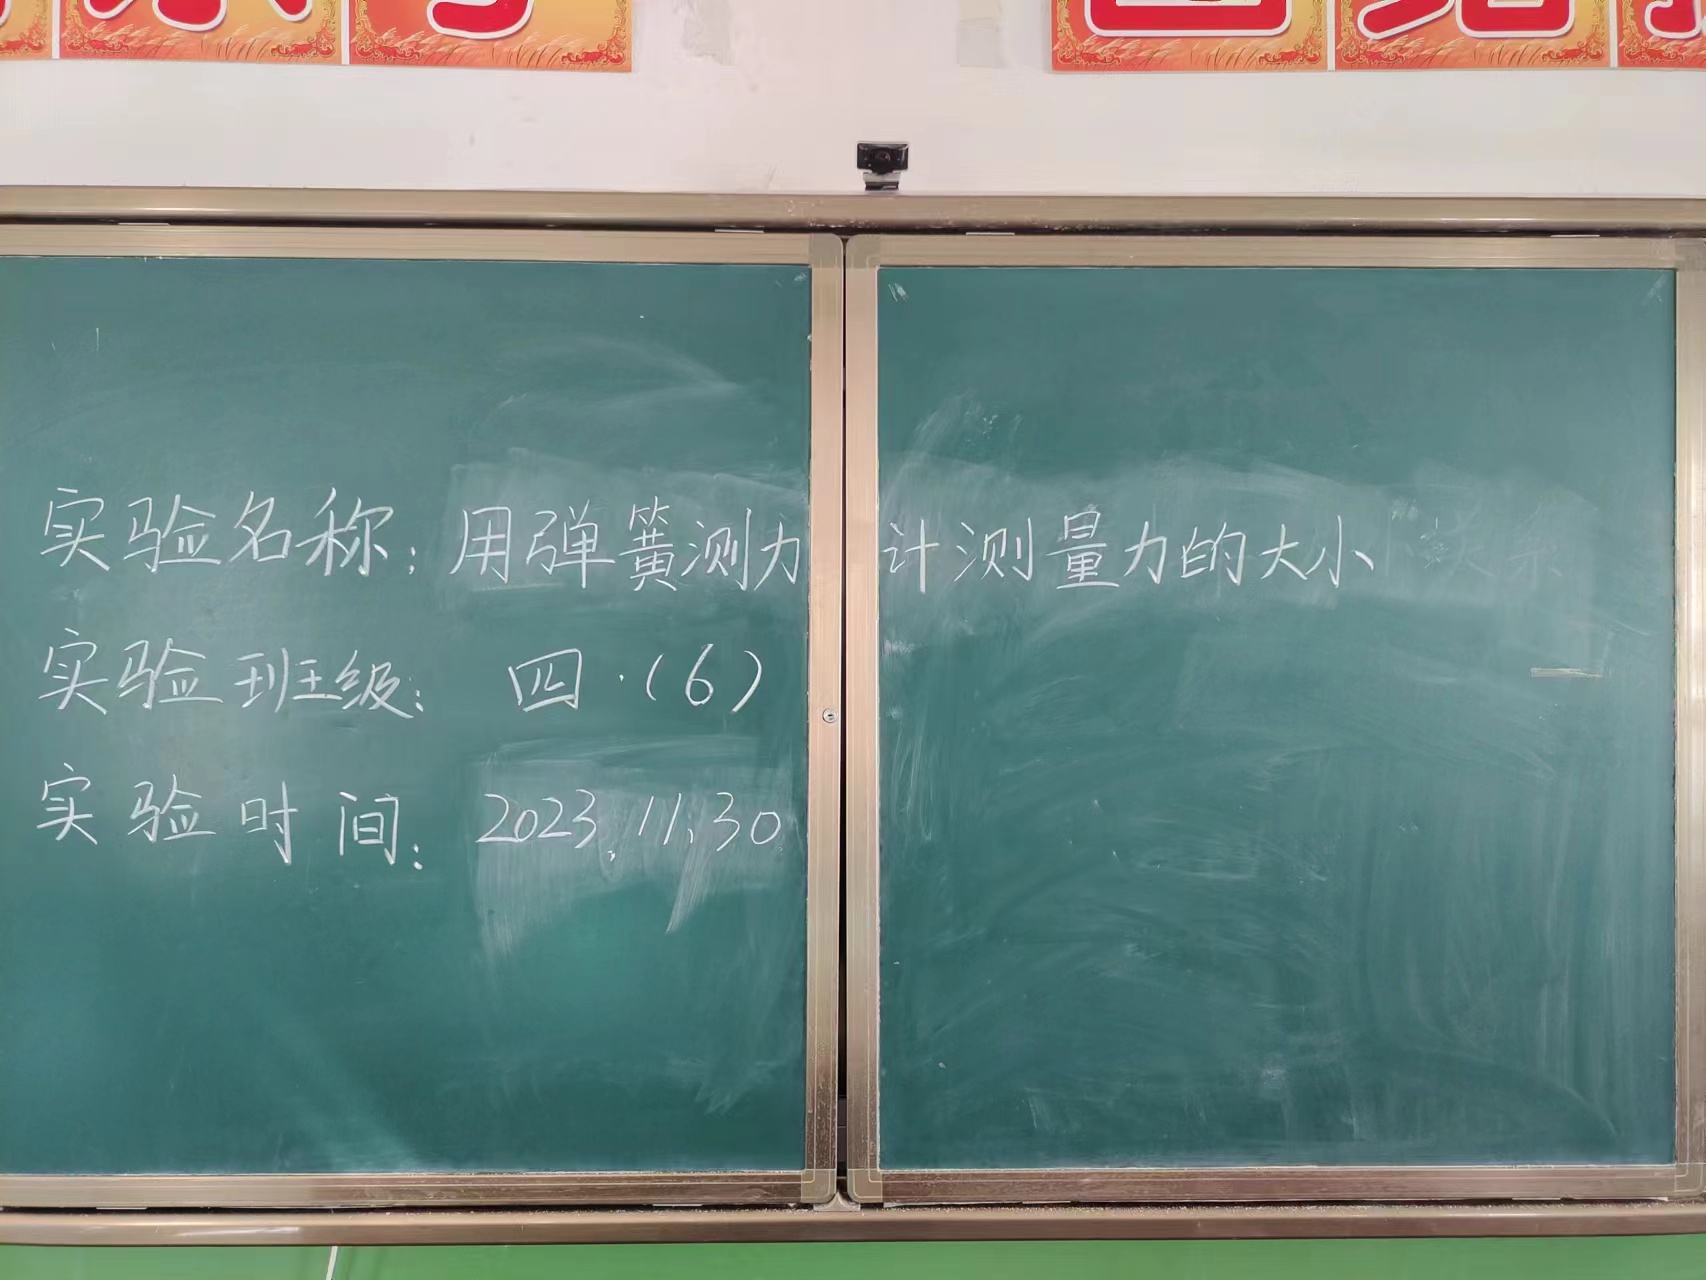 实验名称：用弹簧测力计测量力的大小
实验班级：四.（6）
实验时间：2023.11.30